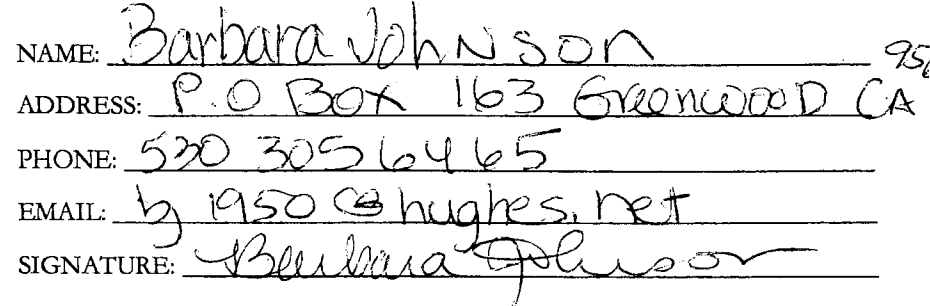 NAME: Barbara Johnson
956
ADDRESS: P.O Box 163 Greenwood CA
PHONE: 530 305 6465
EMAIL: bj1950@hughes.net
SIGNATURE: Barbara Johnson